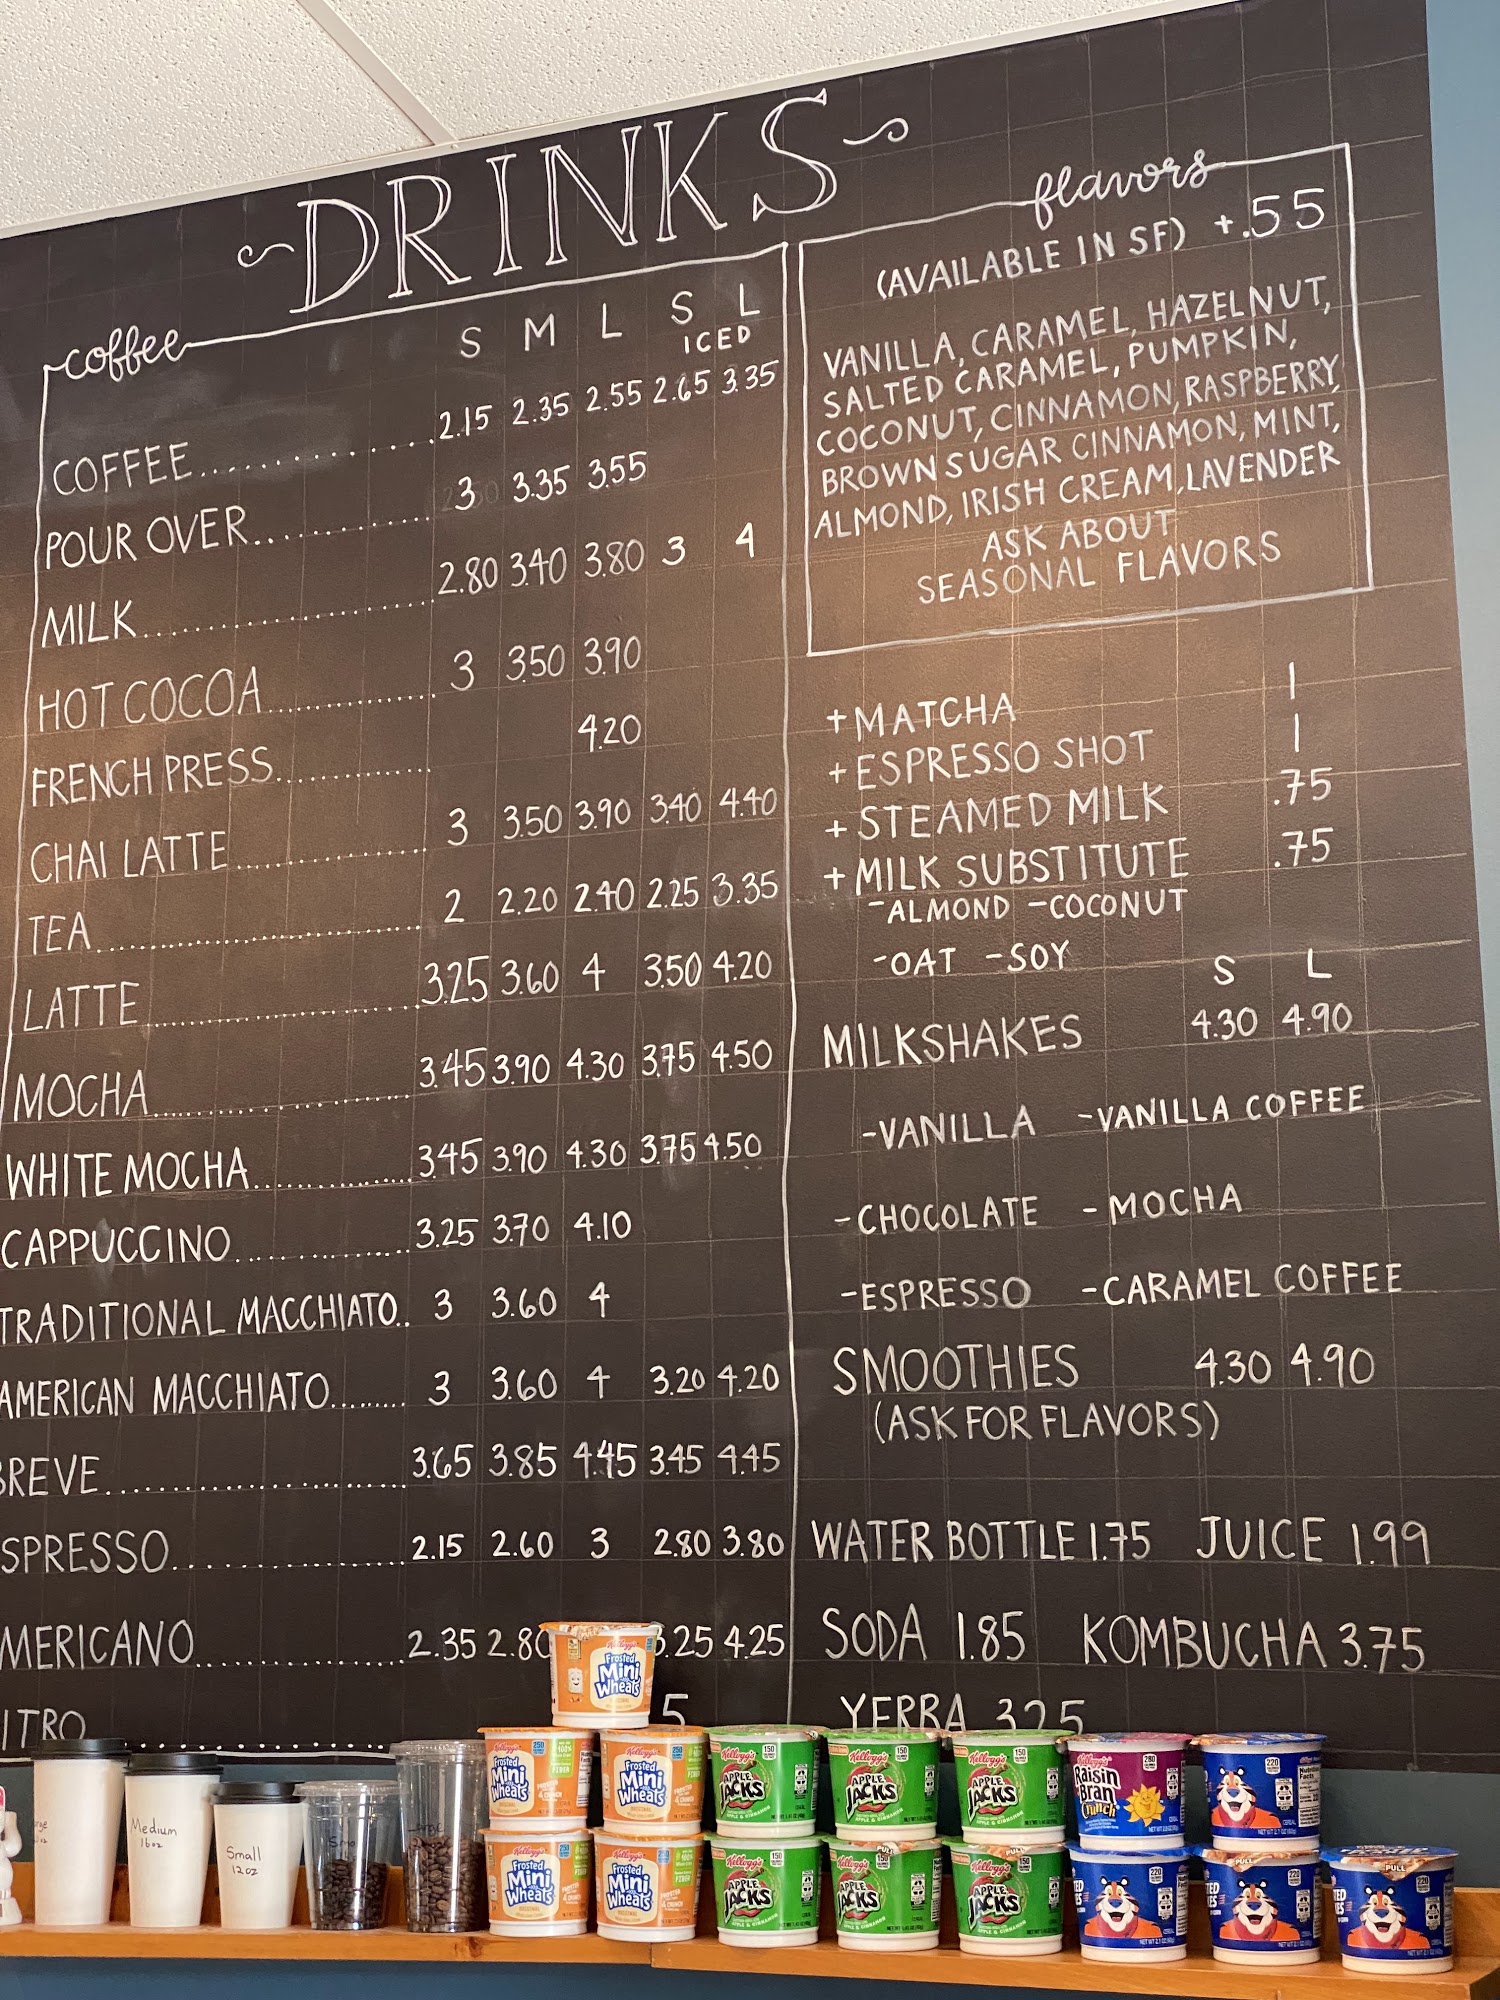 DRINKS
coffee
S M L S L
ICED
COFFEE 2.15 2.35 2.55 2.65 3.35
POUR OVER 3 3.35 3.55
MILK 2.80 3.40 3.80 3 4
HOT COCOA 3 3.50 3.90
FRENCH PRESS 4.20
CHAI LATTE 3 3.50 3.90 3.40 4.40
TEA 2 2.20 2.40 2.25 3.35
LATTE 3.25 3.60 4 3.50 4.20
MOCHA 3.45 3.90 4.30 3.75 4.50
WHITE MOCHA 3.45 3.90 4.30 3.75 4.50
CAPPUCCINO 3.25 3.70 4.10
TRADITIONAL MACCHIATO 3 3.60 4
AMERICAN MACCHIATO 3 3.60 4 3.20 4.20
BREVE 3.65 3.85 4.45 3.45 4.45
SPRESSO 2.15 2.60 3 2.80 3.80
MERICANO 2.35 2.80 3.25 4.25
ITRO 5
flavors
(AVAILABLE IN SF) +.55
VANILLA, CARAMEL, HAZELNUT,
SALTED CARAMEL, PUMPKIN,
COCONUT, CINNAMON, RASPBERRY,
BROWN SUGAR CINNAMON, MINT,
ALMOND, IRISH CREAM, LAVENDER
ASK ABOUT
SEASONAL FLAVORS
+MATCHA 1
+ESPRESSO SHOT 1
+STEAMED MILK .75
+MILK SUBSTITUTE .75
-ALMOND -COCONUT
-OAT -SOY
S L
MILKSHAKES 4.30 4.90
-VANILLA -VANILLA COFFEE
-CHOCOLATE -MOCHA
-ESPRESSO -CARAMEL COFFEE
SMOOTHIES 4.30 4.90
(ASK FOR FLAVORS)
WATER BOTTLE 1.75 JUICE 1.99
SODA 1.85 KOMBUCHA 3.75
YERBA 3.25
Medium
16oz
Small
12oz
Kellogg's
Frosted
Mini
Wheats
Frosted
Mini
Wheats
Kellogg's
Frosted
Mini
Wheats
Kellogg's
APPLE
JACKS
Kellogg's
APPLE
JACKS
Kellogg's
APPLE
JACKS
Kellogg's
Raisin
Bran
Crunch
Kellogg's
Frosted
Mini
Wheats
Kellogg's
Frosted
Mini
Wheats
Kellogg's
APPLE
JACKS
APPLE
JACKS
Kellogg's
APPLE
JACKS